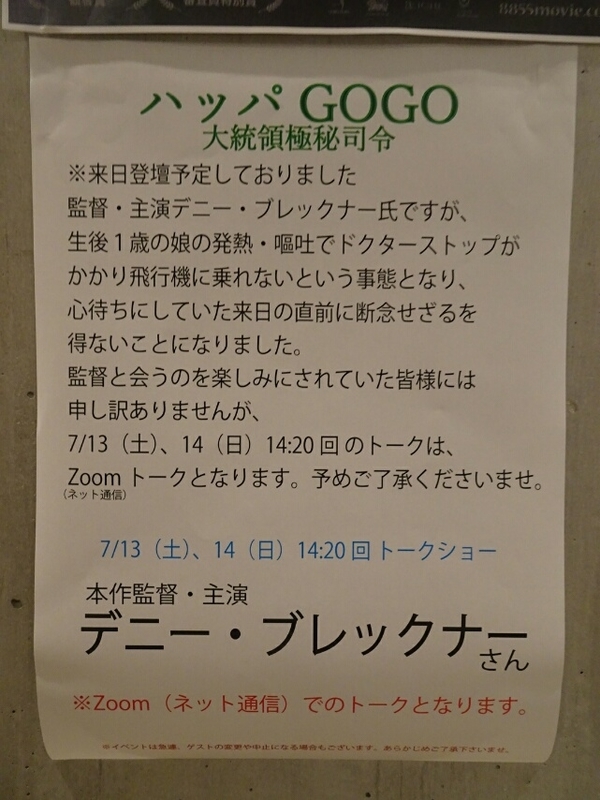 審査員特別賞
8855movie.co
ハッパGOGO
大統領極秘司令
※来日登壇予定しておりました
監督・主演デニー・ブレックナー氏ですが、
生後1歳の娘の発熱・嘔吐でドクターストップが
かかり飛行機に乗れないという事態となり、
心待ちにしていた来日の直前に断念せざるを
得ないことになりました。
監督と会うのを楽しみにされていた皆様には
申し訳ありませんが、
7/13（土）、14（日）14:20回のトークは、
Zoomトークとなります。予めご了承くださいませ。
（ネット通信）
7/13（土）、14（日）14:20回トークショー
本作監督・主演
デニー・ブレックナー
さん
※Zoom（ネット通信）でのトークとなります。
※イベントは急遽、ゲストの変更や中止になる場合もございます。あらかじめご了承下さいませ。